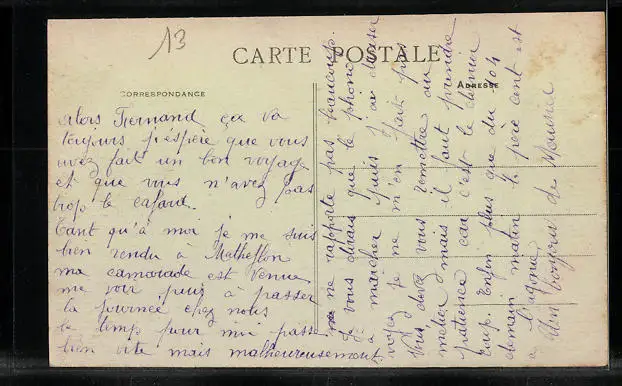 13
CARTE POSTALE
CORRESPONDANCE
ADRESSE
alors Fernand ça va
toujours j'éspère que vous
avez fait un bon voyage
et que vous n'avez pas
trop le cafard.
Tant qu'à moi je me suis
bien rendu à Matheflon
ma camarade est venue
me voir puis à passer
la journée chez nous
le temps pour moi passe
bien vite mais malheureusement
ne rapporte pas beaucoup.
Je vous dirais que le phono
a marcher puis j'ai danser
voyez je ne m'en fait pas
Vous devez vous remettre au
métier mais il faut prendre
patience car c'est le dernier
coup. Enfin plus que du 104
demain matin le père cent est
à l'agonie
Un bonjour de Maurice